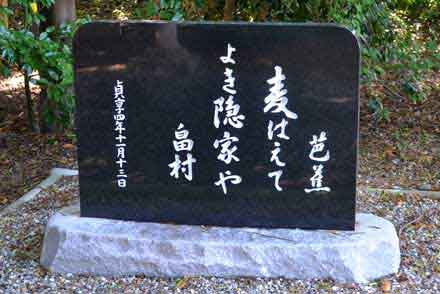 芭蕉
麦はえて
よき隠家や
畠村
貞享四年十一月十三日